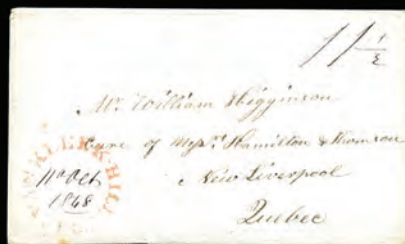 11 1/2
Mr. William Higginson
Care of Messrs. Hamilton & Thomson
New Liverpool
Quebec
KLEEK-HILL
11th Oct
1848